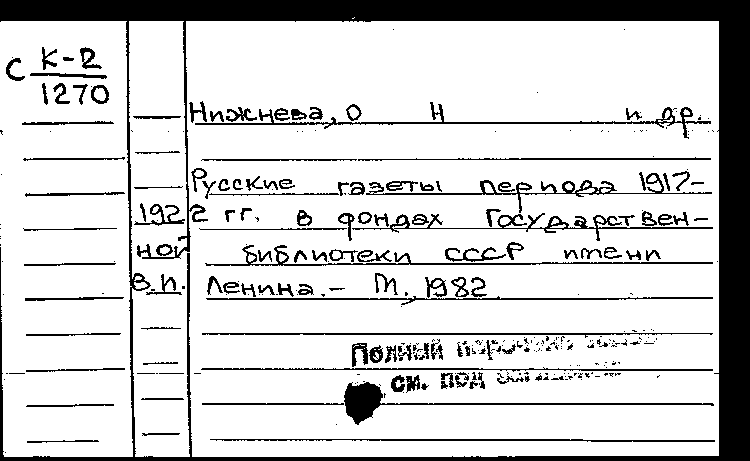 С К-2
1270
Нижнева, О Н и др.
Русские газеты периода 1917-
1922 гг. в фондах Государствен-
ной библиотеки СССР имени
В.И. Ленина. - М., 1982
Полный
см. под